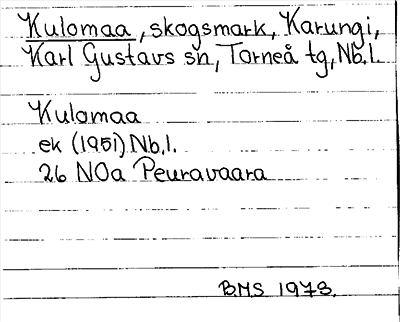 Kulomaa, skogsmark, Karungi,
Karl Gustavs sn, Torneå tg, Nb.l.
Kulomaa
ek (1951) Nb.l.
26 NOa Peuravaara
B.M.S 1973.